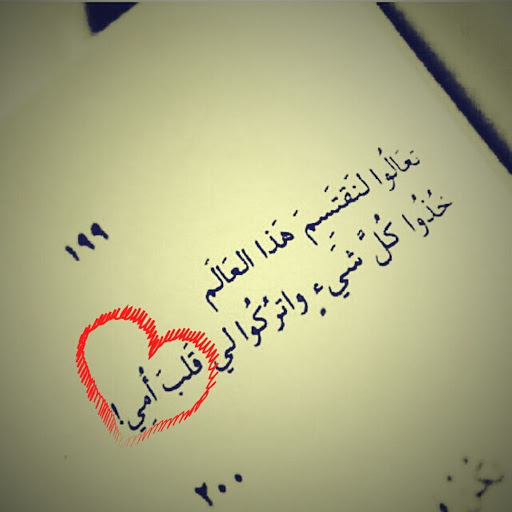 ١٩٩
تعَالُوا لنَقتَسمَ هَذا العَالَم
خُذُوا كُلَّ شَيءٍ واترُكُوا لي قَلبَ أُمِي!
٢٠٠